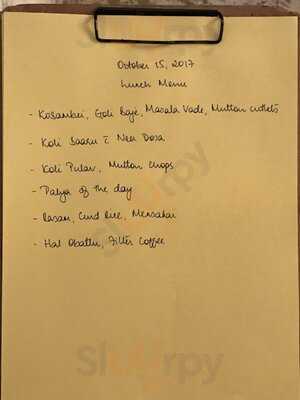 October 15, 2017
Lunch Menu
- Kosambri, Goli Baje, Masala Vade, Mutton cutlets
- Koli Saaru c̄ Neer Dosa
- Koli Pulav, Mutton Chops
- Palya of the day
- Rasam, Curd Rice, Menasakai
- Hal Obattu, Filter Coffee
Sluurpy
Sluurpy